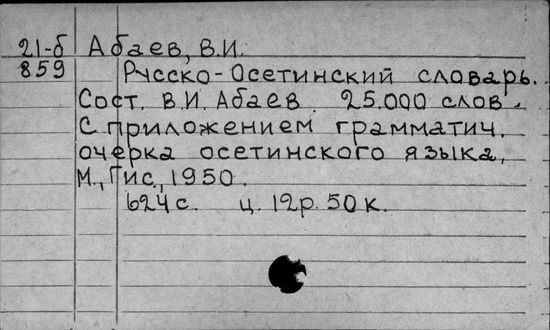 21-б Абаев, В.И.
859 Русско-Осетинский словарь.
Сост. В.И. Абаев. 25.000 слов.
С приложением грамматич.
очерка осетинского языка,
М., Гис, 1950.
624 с. ц. 12р. 50 к.